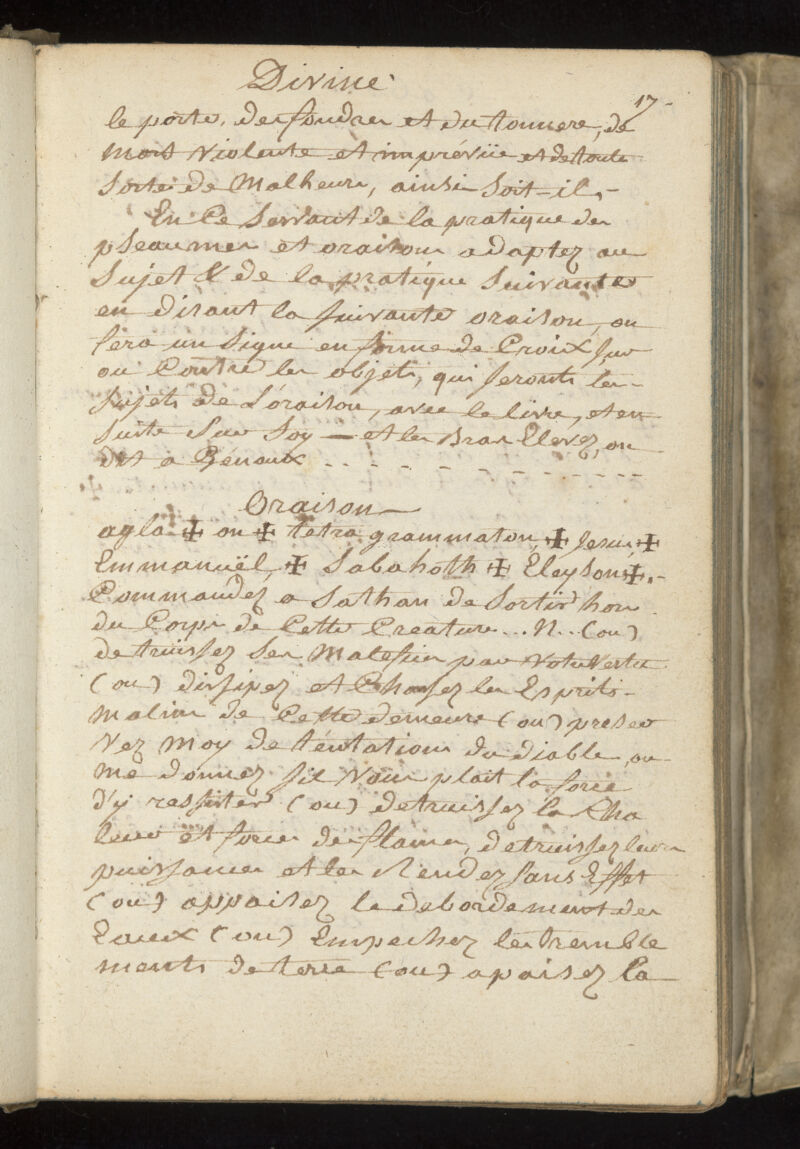 Divine
17
le porte, des foudres et du tonnere, de
Mort Violente et imprévüe et de toute
Sorte de Malheurs, ainsi Soit-il,-
En Ce Servant de la pratique des
pSeaumes et oraisons adaptez au
Sujet & de la pratique Suivante
en disant la Suivante oraison, on
fera un Signe en forme de Croix Sur
ou Contre les objets, qui Seronts les
Sujets de L'oraison, avec le livre, et en
Suite Sur Soy — et les Bras Elevez, on
dit a Genoux - - - - - - - - - - -
Oraison
agla ✠ on ✠ tetra grammaton, ✠ Jesus ✠
Emmanuël, ✠ Sabahoth ✠ Éleyson ✠,-
Commandez a Sathan de Sortir hors
du Corps de Cette Creature...N...(ou)
detruissez Ses Malefices par Votre Vertu
(ou) dissipez et Chassez les Esprits
Malins de Cette demeure (ou) preser
Vez Moy de téntations du diable, ou
Me donnez sil Vous plait la force
d'y ressister (ou) detruissez la Cha
leur et force des flames, detruissez leurs
puissances et les Rendez Sans Effet
(ou) appaisez le debordement des
Eaux (ou) Empechez les tremble
ments de terre (ou) apaisez la